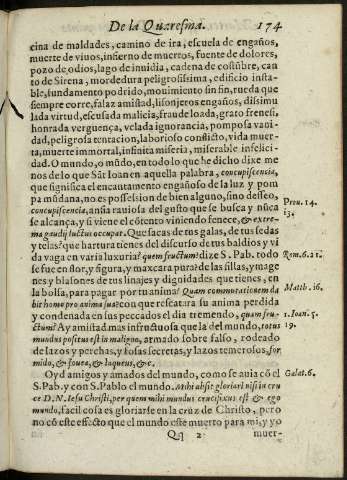 De la Quaresma. 174
cina de maldades, camino de ira, escuela de engaños,
muerte de viuos, infierno de muertos, fuente de dolores,
pozo de odios, lago de inuidia, cadena de costũbre, can
to de Sirena, mordedura peligrosissima, edificio insta-
ble, fundamento podrido, mouimiento sin fin, rueda que
siempre corre, falaz amistad, lisonjeros engaños, dissimu
lada virtud, escusada malicia, fraude loada, grato frenesi,
honrada verguença, velada ignorancia, pomposa vani-
dad, peligrosa tentacion, laborioso conflicto, vida muer-
ta, muerte immortal, infinita miseria, miserable infelici-
dad. O mundo, o mũdo, en todo lo que he dicho dixe me
nos de lo que Sãt Ioan en aquella palabra, concupiscencia,
que significa el encantamento engañoso de la luz y pom
pa mũdana, no es possession de bien alguno, sino desseo,
concupiscencia, ansia rauiosa del gusto que se busca y nũca
se alcança, y si viene el cõtento viniendo fenece, & extre-
ma gaudij luctus occupat. Que sacas de tus galas, de tus sedas
y telas? que hartura tienes del discurso de tus baldios y vi
da vaga en varia luxuria? quem fructum? dize S. Pab. todo
se fue en flor, y figura, y maxcara pura: de las sillas, ymage
nes y blasones de tus linajes y dignidades que tienes, en
la bolsa, para pagar por tu anima? Quam commutationem da
bit homo pro anima sua: cou que rescatara su anima perdida
y condenada en sus peccados el dia tremendo, quam fru-
ctum? Ay amistad mas infructuosa que la del mundo, totus
mundus positus est in maligno, armado sobre falso, rodeado
de lazos y perchas, y fosas secretas, y lazos temerosos, for
mido, & fouea, & laqueus, &c.
Oyd amigos y amados del mundo, como se auia cõ el
S. Pab. y con S. Pablo el mundo. Mihi absit gloriari nisi in cru
ce D. N. Iesu Christi, per quem mihi mundus crucifixus est & ego
mundo, facil cosa es gloriarse en la cruz de Christo, pero
no cõ este effecto que el mundo este muerto para mi, y yo
Qq 2 muer-
Prou. 14.
13.
Rom. 6. 21.
Matth. 16.
1. Ioan. 5.
19.
Galat. 6.